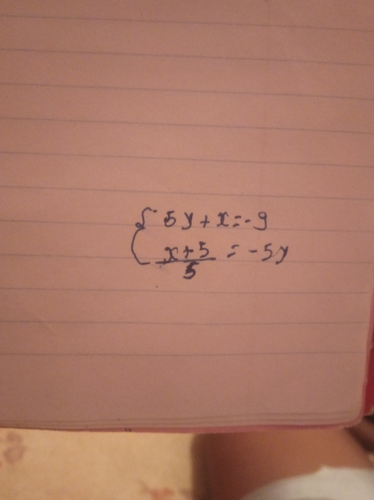 { 5y + x = -9
x + 5 / 5 = -5y